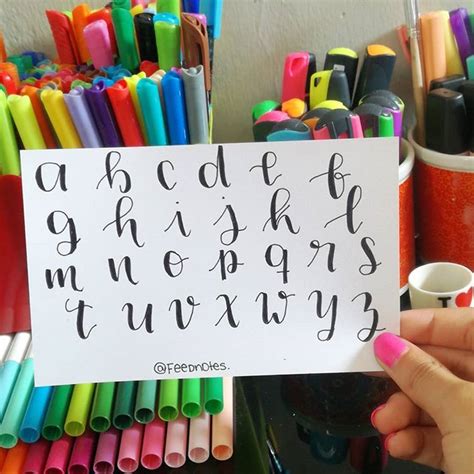 a b c d e f
g h i j k l
m n o p q r s
t u v x w y z
@Feednotes.
I